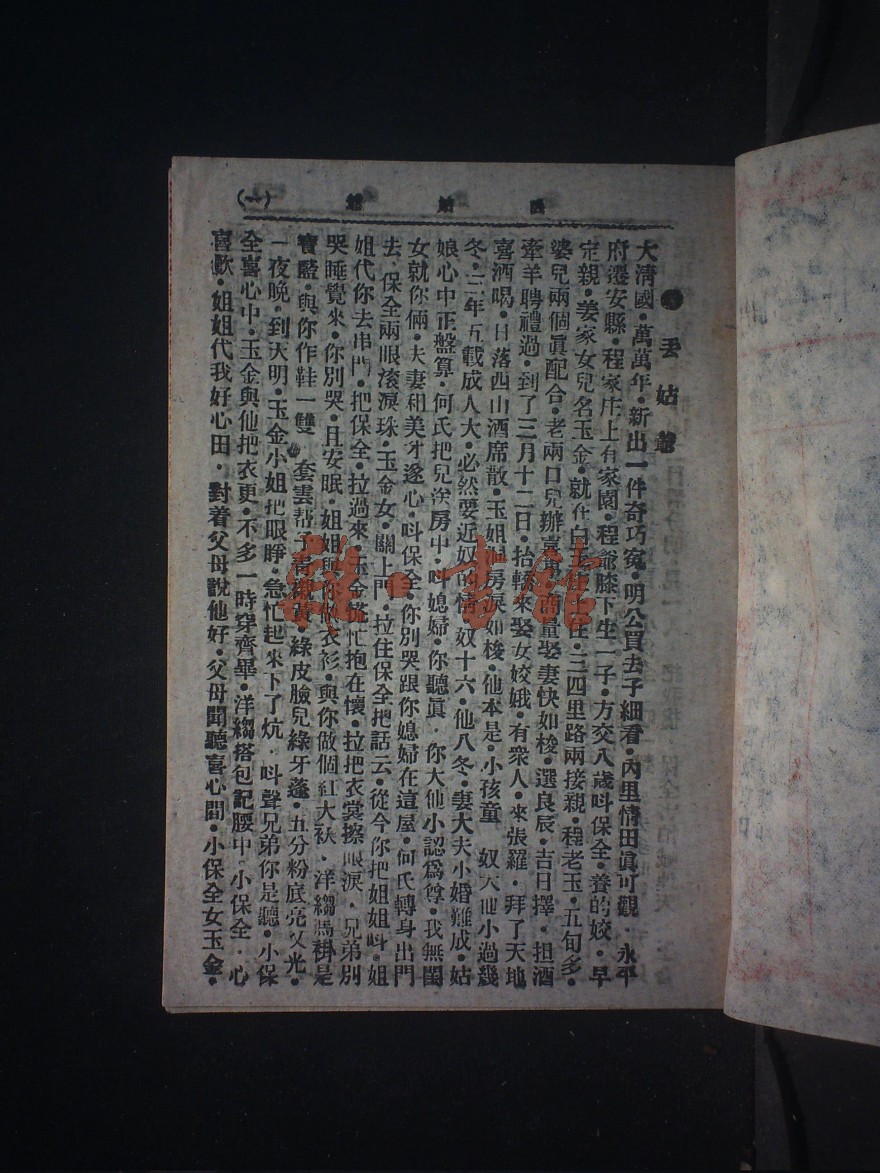 丟姑爺
(一)
丟姑爺
大清國·萬萬年·新出一件奇巧寃·明公買去子細看·內里情田眞可觀·永平
府遷安縣·程家庄上有家園·程爺膝下生一子·方交八歲呌保全·養的姣·早
定親·姜家女兒名玉金·就在白 住·三四里路兩接親·程老玉·五旬多·
婆兒兩個眞配合·老兩口兒辦喜事·商量娶妻快如梭·選良辰·吉日擇·担酒
牽羊聘禮過·到了三月十二日·抬轎來娶女姣娥·有衆人·來張羅·拜了天地
喜酒喝·日落西山酒席散·玉姐 房淚如梭·他本是·小孩童 奴大他小過幾
冬·三年五載成人大·必然要近奴的情·奴十六·他八冬·妻大夫小婚難成·姑
娘心中正盤算·何氏把兒送房中·呌媳婦·你聽眞·你大他小認爲尊·我無閨
女就你倆·夫妻和美才遂心·呌保全·你別哭跟你媳婦在這屋·何氏轉身出門
去·保全兩眼滚淚珠·玉金女·關上門·拉住保全把話云·從今你把姐姐呌·姐
姐代你去串門·把保全·拉過來·玉金慌忙抱在懷·拉把衣裳擦眼淚·兄弟別
哭睡覺來·你別哭·且安眠·姐姐與你做衣衫·與你做個紅大袄·洋縐馬褂是
寶藍·與你作鞋一雙 套雲帮子青 黃·綠皮臉兒綠牙蓬·五分粉底亮又光·
一夜晚·到天明·玉金小姐把眼睜·急忙起來下了炕·呌聲兄弟你是聽·小保
全喜心中·玉金與他把衣更·不多一時穿齊畢·洋縐搭包記腰中·小保全·心
喜歡·姐姐代我好心田·對着父母說他好·父母聞聽喜心間·小保全女玉金·
雜·書館